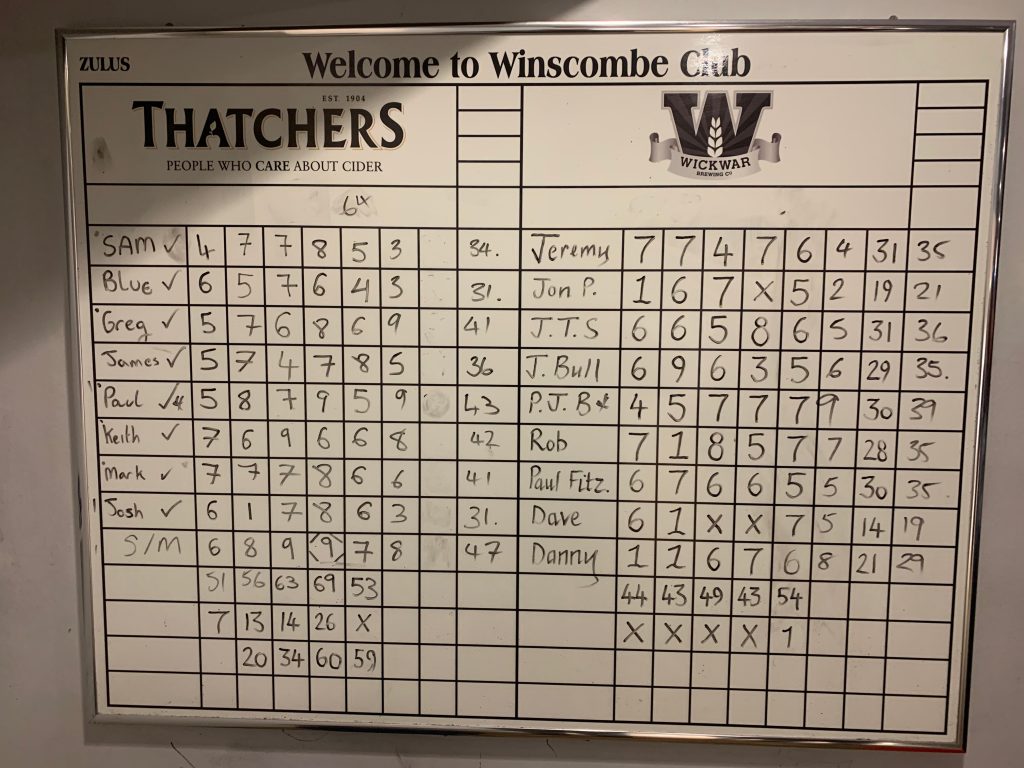 ZULUS Welcome to Winscombe Club
EST. 1904
THATCHERS
PEOPLE WHO CARE ABOUT CIDER
W
WICKWAR
BREWING CO
SAM ✓ 4 7 7 8 5 3 34. Jeremy 7 7 4 7 6 4 31 35
BLUE ✓ 6 5 7 6 4 3 31. Jon P. 1 6 7 X 5 2 19 21
Greg ✓ 5 7 6 8 6 9 41 J.T.S 6 6 5 8 6 5 31 36
James ✓ 5 7 4 7 8 5 36 J. Bull 6 9 6 3 5 6 29 35.
Paul ✓ 5 8 7 9 5 9 43 P.J.B 4 5 7 7 7 9 30 39
Keith ✓ 7 6 9 6 6 8 42 Rob 7 1 8 5 7 7 28 35
Mark ✓ 7 7 7 8 6 6 41 Paul Fitz. 6 7 6 6 5 5 30 35.
Josh ✓ 6 1 7 8 6 3 31. Dave 6 1 X X 7 5 14 19
S/M 6 8 9 9 7 8 47 Danny 1 1 6 7 6 8 21 29
51 56 63 69 53 44 43 49 43 54
7 13 14 26 X X X X X 1
20 34 60 59